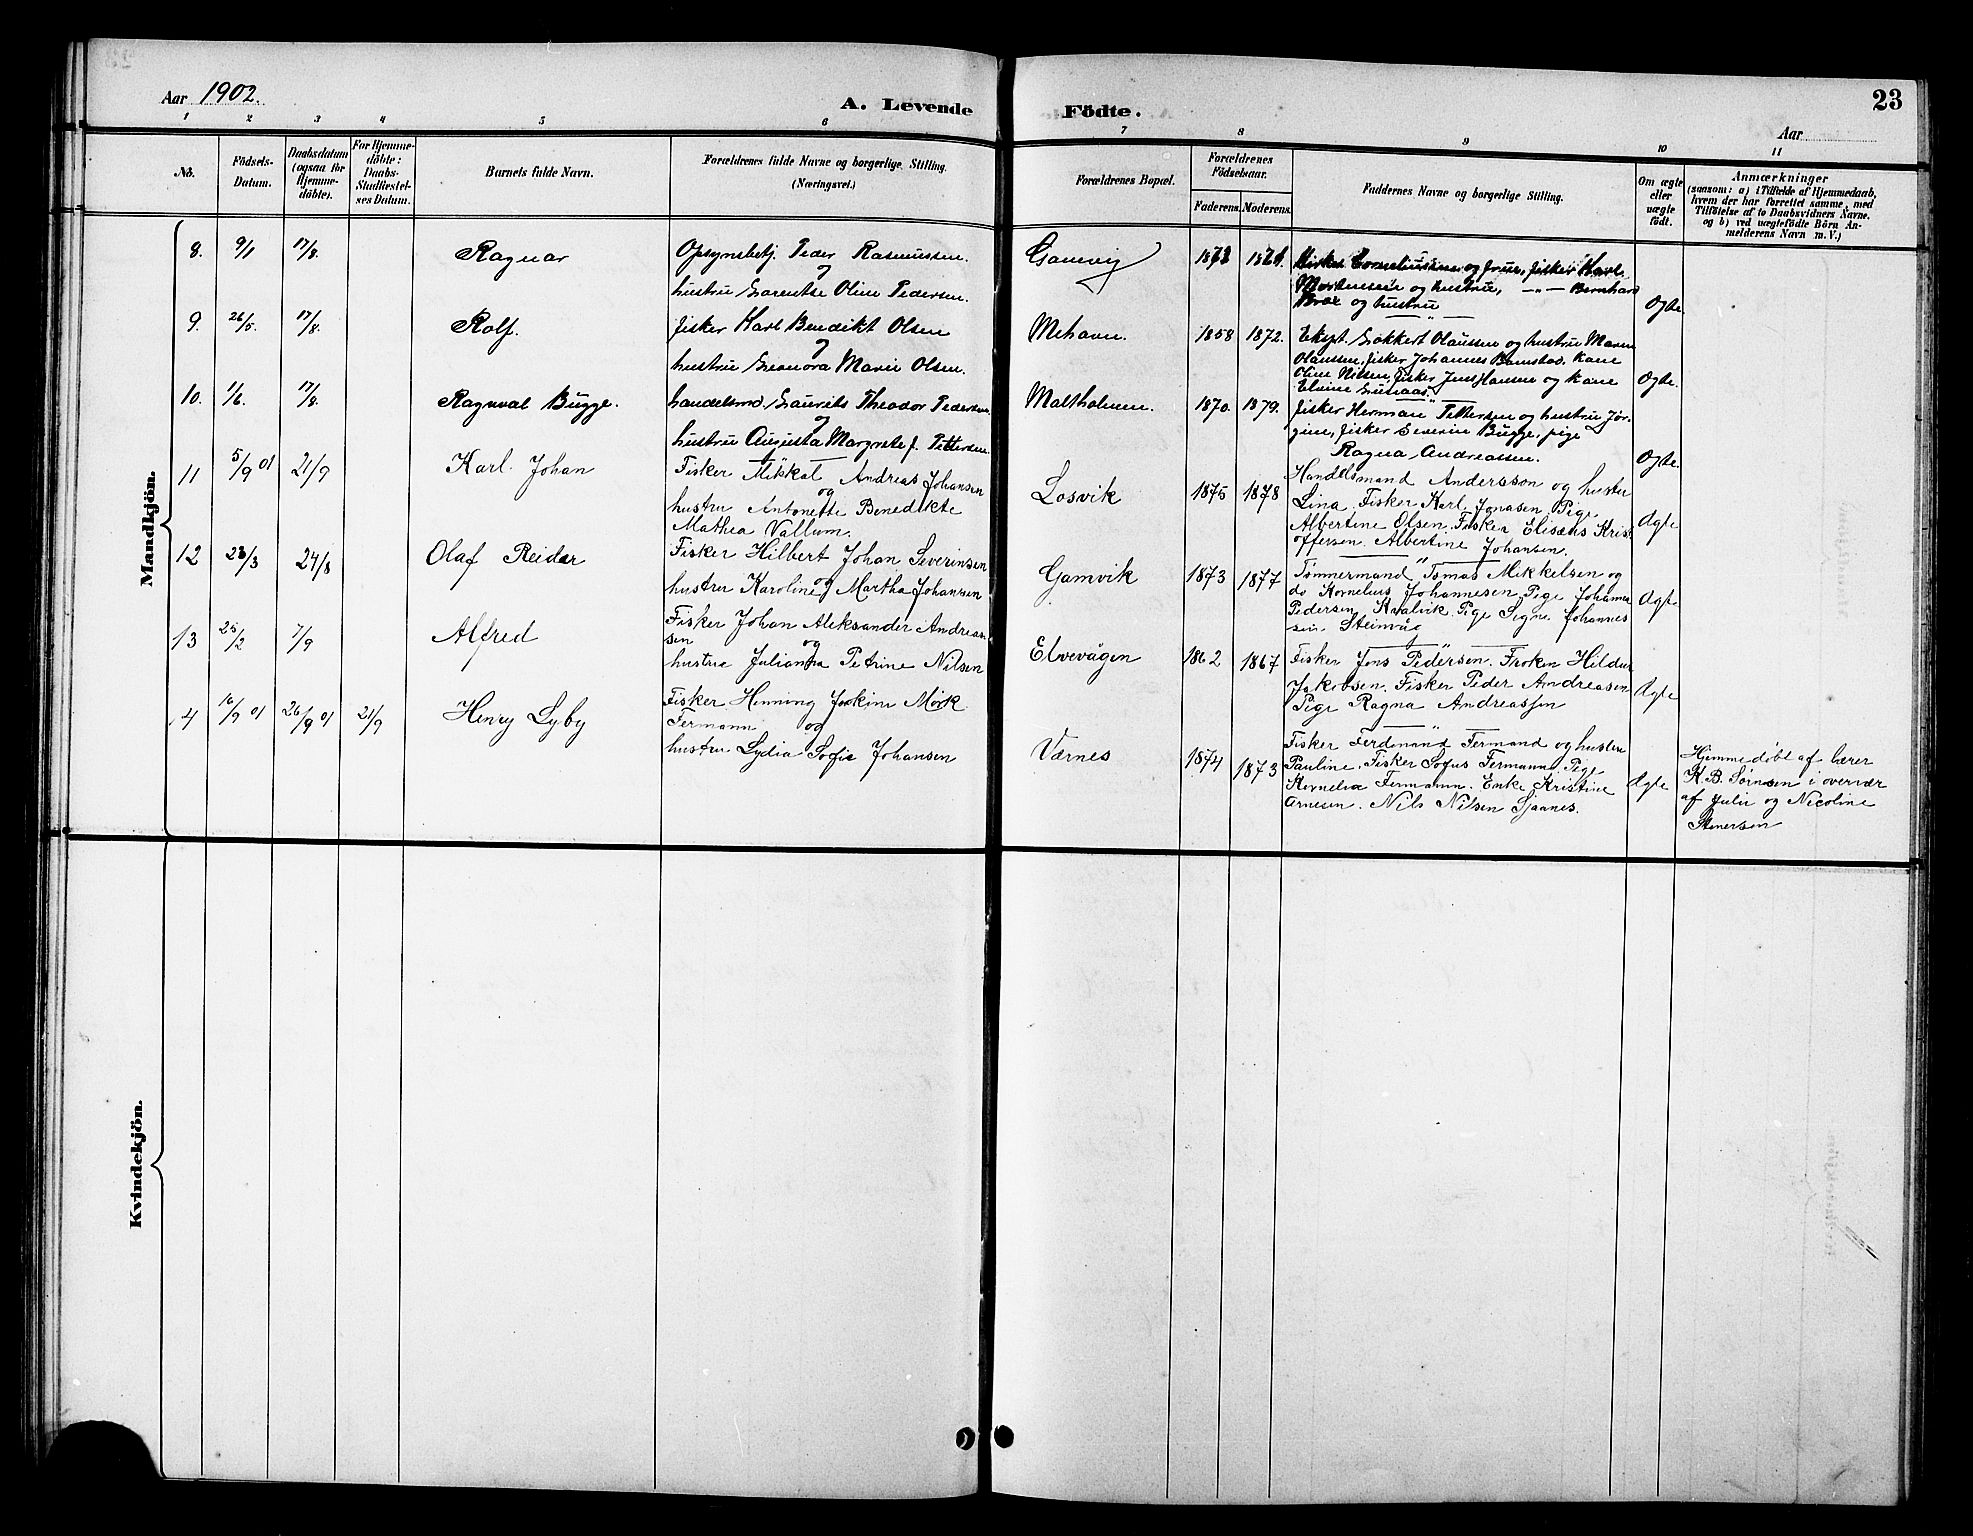 Aar 1902.
A. Levende Födte.
23
Aar
1 2 3 4 5 6 7 8 9 10 11
No.
Födsels-
Datum.
Daabsdatum
(ogsaa for
Hjemme-
döbte).
For Hjemme-
döbte:
Daabs-
Stadfæstel-
ses Datum.
Barnets fulde Navn.
Forældrenes fulde Navne og borgerlige Stilling.
(Næringsvei.)
Forældrenes Bopæl.
Forældrenes
Födselsaar.
Faderens. Moderens.
Faddernes Navne og borgerlige Stilling.
Om ægte
eller
uægte
födt.
Anmærkninger
(saasom: a) i Tilfælde af Hjemmedaab,
hvem der har forrettet samme, med
Tilföielse af to Daabsvidners Navne.
og b) ved uægtefödte Börn An-
melderens Navn m. V.)
Mandkjön.
8. 9/1 17/8. Ragnar
Opsynsbetj. Peder Rasmussen.
og
hustru Larentse Oline Pedersen.
Gamvig
1872
Corneliussen og frue, fisker Karl
Mortensen og hustru, — " — Bernhard
og hustru
Ægte.
9. 26/5. 17/8. Rolf.
fisker Karl Benedikt Olsen
og
hustru Leonora Marie Olsen.
Mehavn. 1858 1872.
Eksp. Olaussen og hustru Maren
Olaussen, fisker Johannes kone
Oline Nilsen, fisker Jens Hansen og kone
Elvine
Ægte.
10. 1/6. 17/8. Ragnval Bugge.
handelsmd. Laurits Theodor Pedersen
og
hustru Augusta Margrete f. Pettersen
Maltholmen. 1870. 1879.
fisker Herman Pettersen og hustru Jør-
gine, fisker Severin Bugge, pige
Ragna Andreassen.
Ægte.
11 5/9 01 21/9 Karl. Johan
Fisker Mikkal Andreas Johansen
og
hustru Antonette Benedikte
Mathea Vallum.
Losvik 1875 1878
Handelsmand Andersson og hustru
Lina. Fisker Karl Jonasen Pige
Albertine Olsen. Fisker Elisæus Krist
offersen. Albertine Johansen.
Ægte
12 23/3 24/8 Olaf Reidar
Fisker Hilbert Johan Severinsen
og
hustru Karoline Martha Johansen
Gamvik 1873 1877
Tømmermand Tomas Mikkelsen og
do Kornelius Johannesen Pige Johanna
Pedersen Kvalvik Pige Signe Johannes
sen. Steinvåg
Ægte
13 25/2 7/9 Alfred
Fisker Johan Aleksander Andreas-
sen
og
hustru Julianna Petrine Nilsen
Elvevågen 1862 1867
Fisker Jens Pedersen. Frøken Hildur
Jakobsen. Fisker Peder Andreasen
Pige Ragna Andreassen
Ægte
14 16/9 01 26/9 01 21/9 Henry Lyby
Fisker Henning Joakim Mørk
Fermann og
hustru Lydia Sofie Johansen
Værnes 1874 1873
Fisker Ferdinand Fermand og hustru
Pauline, Fisker Sofus Fermann. Pige
Kornelia Fermann. Enke Kristine
Arnesen. Nils Nilsen Sjaanes.
Ægte
Hjemmedøbt af lærer
K. B. Sørnsen i overvær
af Julie og Nicoline
Stenersen
Kvindekjön.